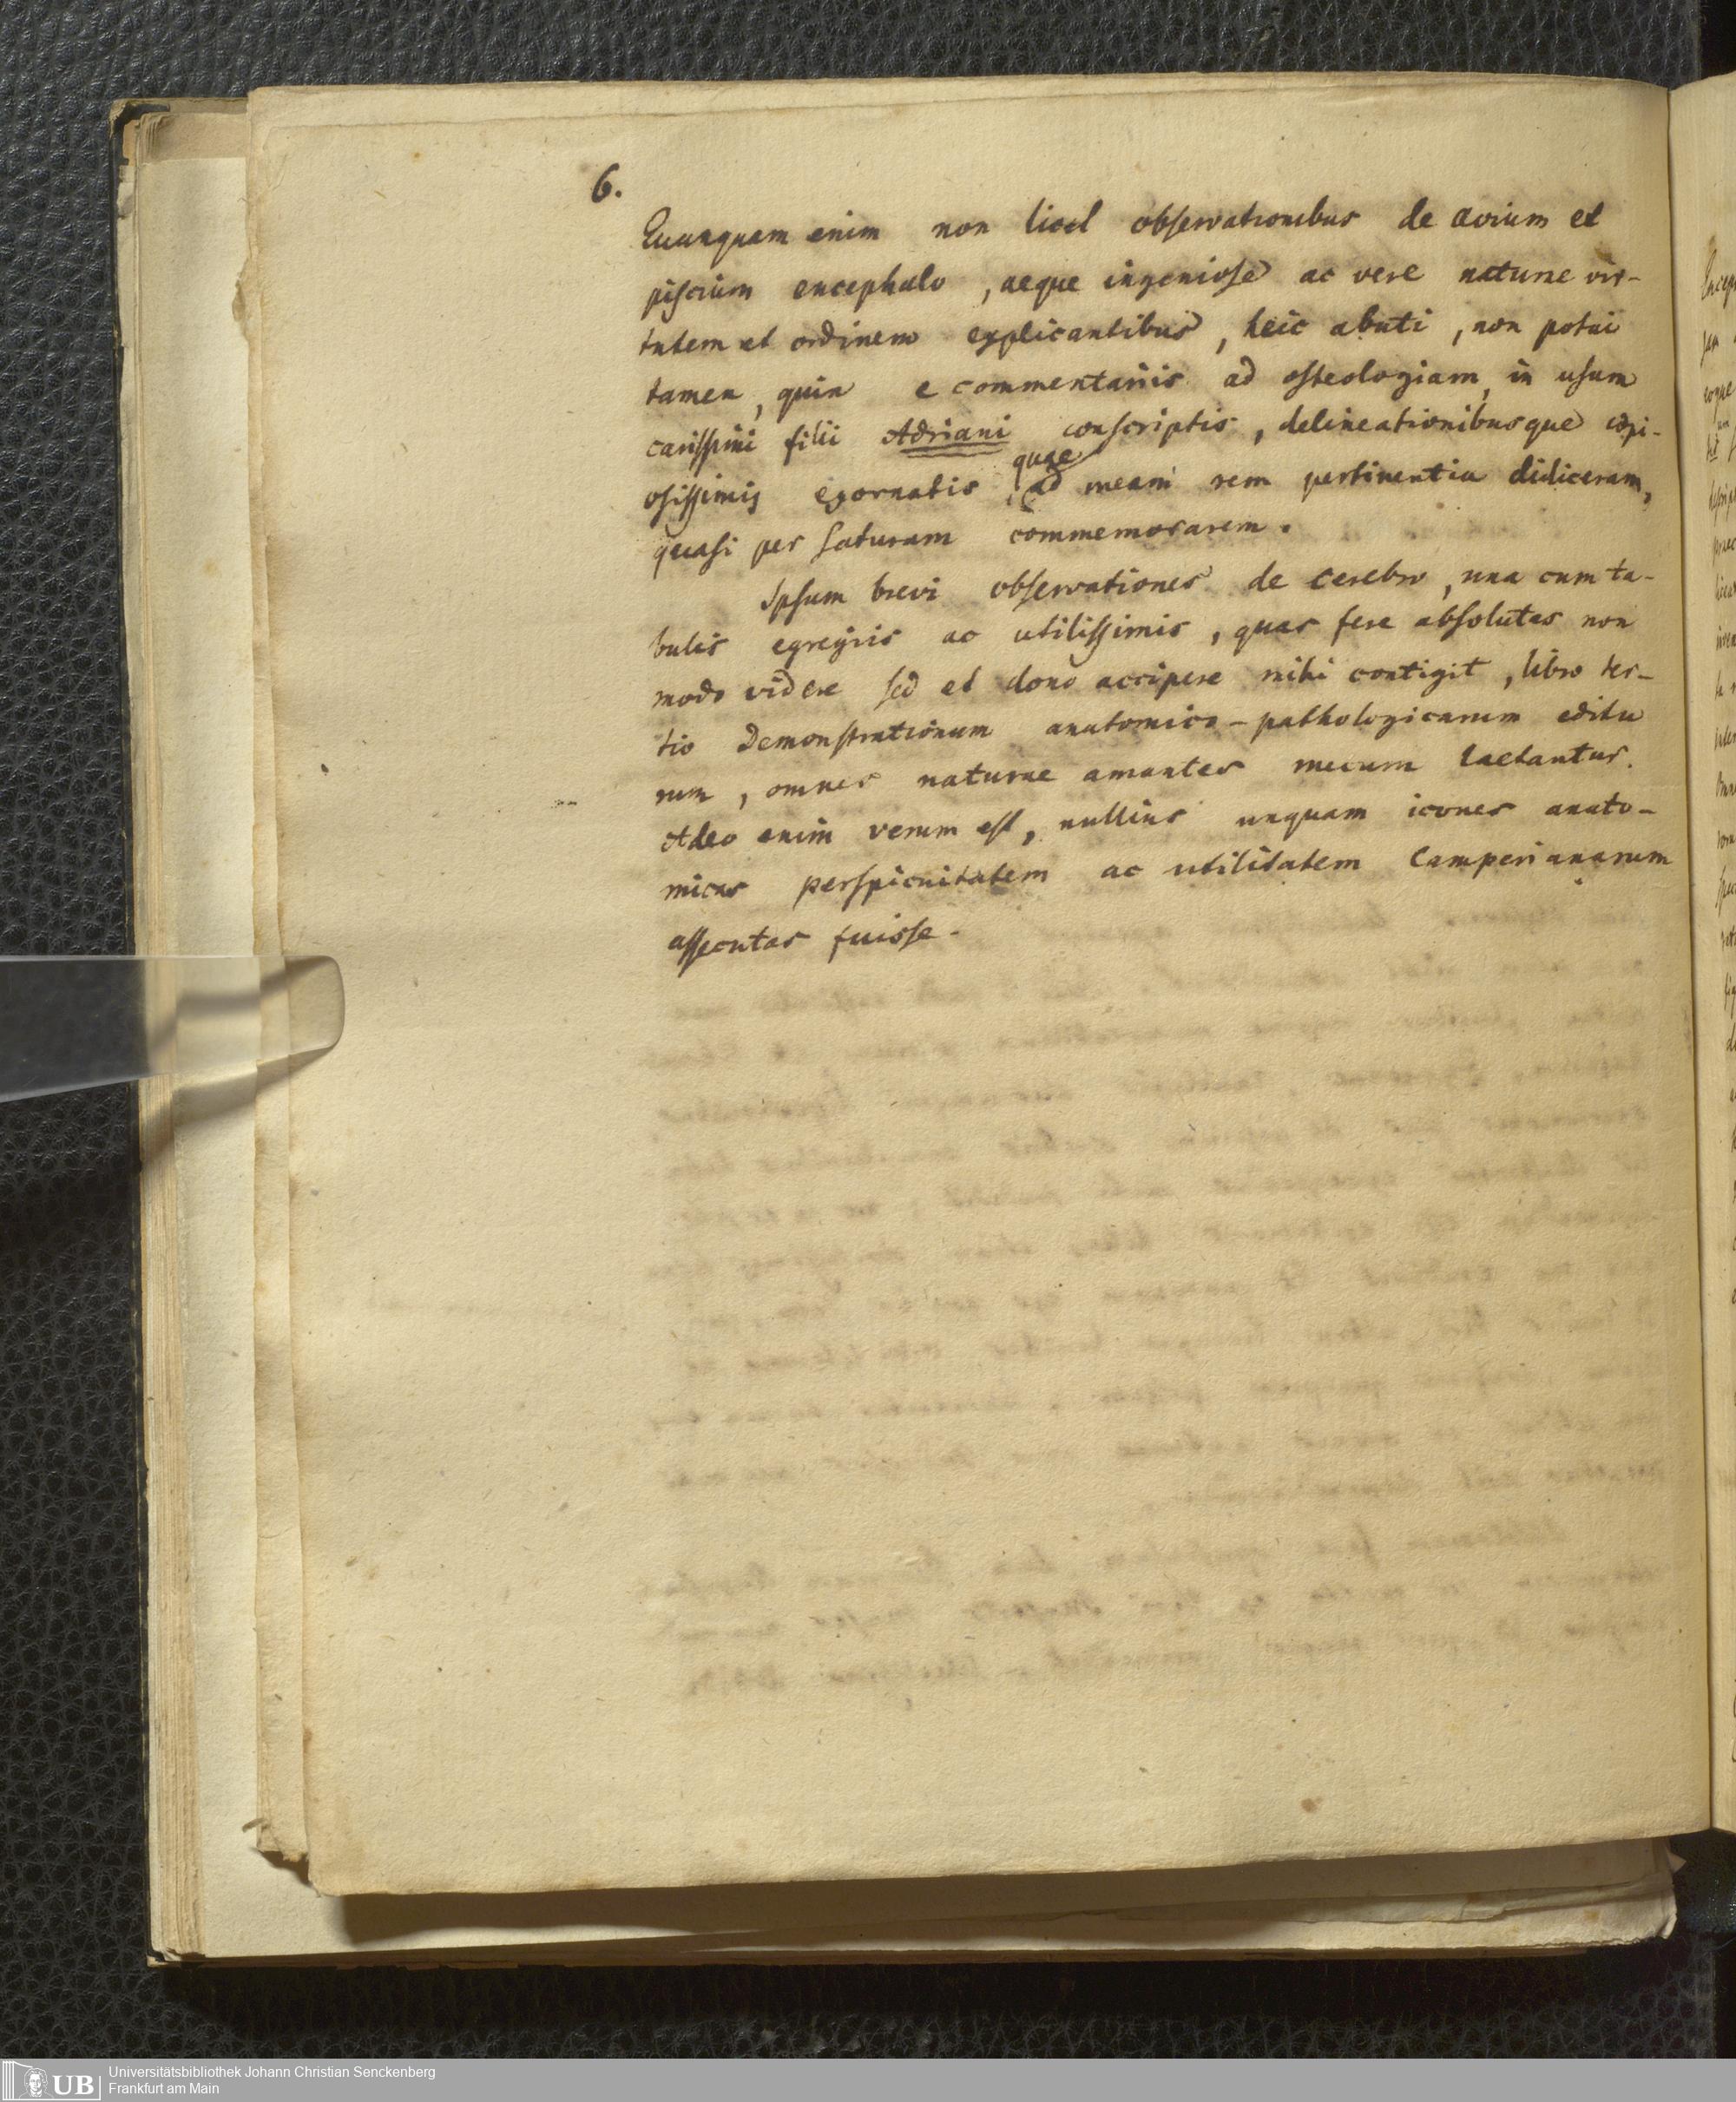 6.
Quanquam enim non licet obſervationibus de avium et
piſcium encephalo, aeque ingenioſe ac vere naturae vir-
tutem et ordinem explicantibus, heic abuti, non potui
tamen, quin e commentariis ad oſteologiam, in uſum
cariſſimi filii Adriani conſcriptis, delineationibusque copi-
oſiſſimis exornatis, quae ad meam rem pertinentia didiceram,
quaſi per ſaturam commemorarem.
Ipſum brevi obſervationes de cerebro, una cum ta-
bulis egregiis ac utiliſſimis, quas fere abſolutas non
modo videre ſed et dono accipere mihi contigit, libro ter-
tio Demonſtrationum anatomico-pathologicarum editu
rum, omnes naturae amantes mecum laetantur.
Adeo enim verum eſt, nullius unquam icones anato-
micas perſpicuitatem ac utilitatem Camperianarum
aſſecutas fuiſſe.
UB
Universitätsbibliothek Johann Christian Senckenberg
Frankfurt am Main